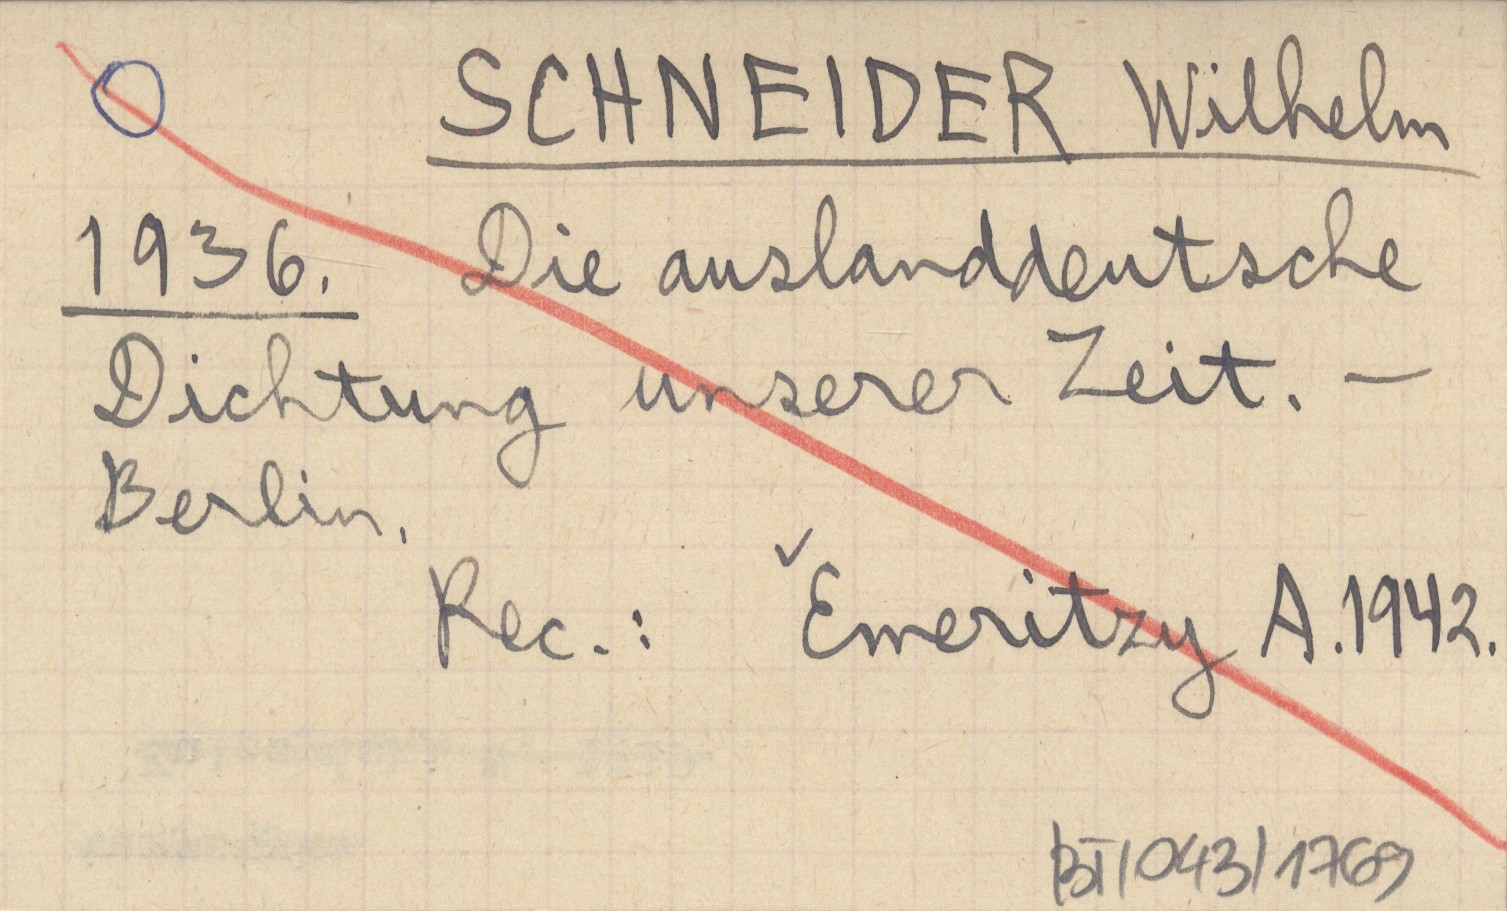 SCHNEIDER Wilhelm
1936. Die auslanddeutsche
Dichtung unserer Zeit. —
Berlin.
Rec.: ✓Emeritzy A. 1942.
BI/043/1769